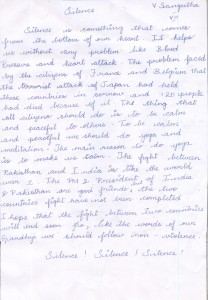 Silence
V Sangeetha
V
Silence is something that comes
from the bottom of our heart. It helps
us without any problem like Blood
Pressure and heart attack. The problem faced
by the citizens of France and Belgium that
the terrorist attack of Japan had held
these countries in sorrow and 120 people
had died because of it. The thing that
all citizens should do is to be calm
and peaceful to others. To be calm
and peaceful we should do yoga and
meditation. The main reason to do yoga
is to make us calm. The fight between
Pakisthan and India is like the world
war 2. The President of India
& Pakisthan are good friends, the two
countries fight have not been completed.
I hope that the fight between two countries
will end soon. So, like the words of our
Gandhiji we should follow non-violence.
Silence ! Silence ! Silence !